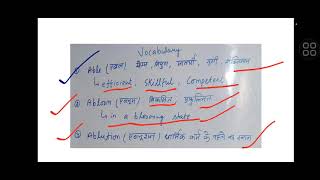 Vocabulary
① Able (एबल) योग्य, निपुण, समर्थ, गुणी,
↳ efficient, Skillful, Competent
② Abloom (एब्लूम) विकसित, प्रफुल्लित
↳ in a blooming state
③ Ablution (एब्लूशन) धार्मिक कार्य के पहले का स्नान